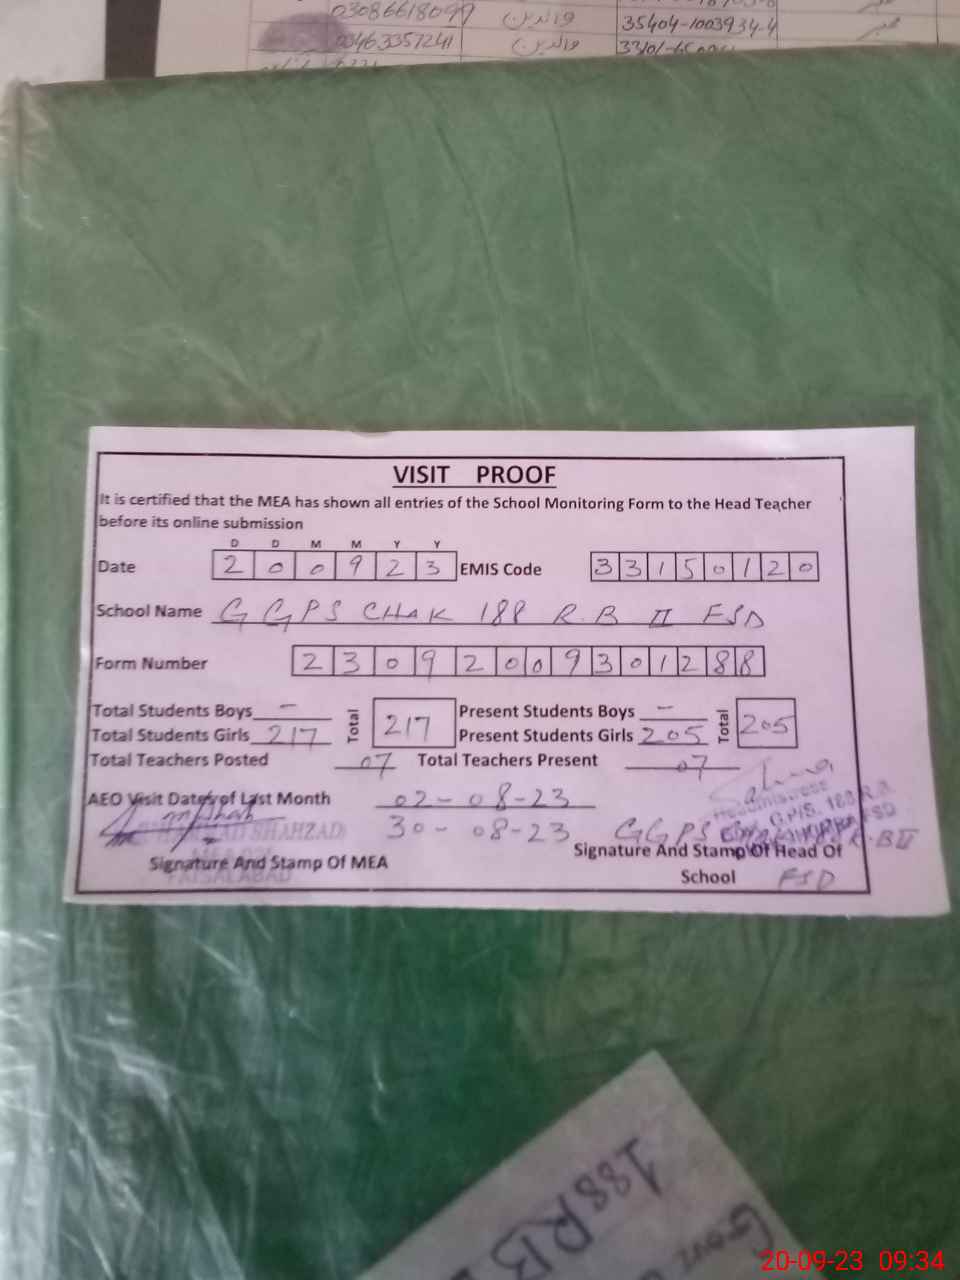 03086618099 والدین 35404-1003934-4 ممبر
03463357241 والدین
VISIT PROOF
It is certified that the MEA has shown all entries of the School Monitoring Form to the Head Teacher
before its online submission
D D M M Y Y
Date 2 0 0 9 2 3 EMIS Code 3 3 1 5 0 1 2 0
School Name G GPS CHAK 188 R.B II FSD
Form Number 2 3 0 9 2 0 0 9 3 0 1 2 8 8
Total Students Boys - Total 217 Present Students Boys - Total 205
Total Students Girls 217 Present Students Girls 205
Total Teachers Posted 07 Total Teachers Present 07
AEO Visit Dates of Last Month 02-08-23
30-08-23
SHAHZAD
FAISALABAD
Headmistress
G.P/S. 188 R.B.
FSD
GGPS R.BII
FSD
Signature And Stamp Of MEA
Signature And Stamp Of Head Of
School
188 RB
Govt
20-09-23 09:34